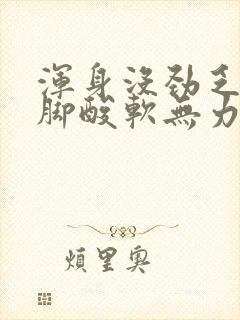 渾身沒勁乏
腳酸軟無力
煩里奧